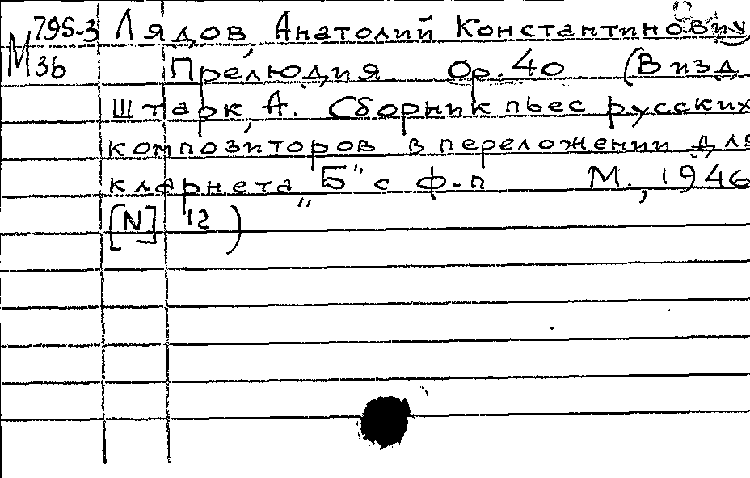 М 795-3 Лядов, Анатолий Константинович
36 Прелюдия Ор. 40 (В изд.
Штарк, А. Сборник пьес русских
композиторов в переложении для
кларнета "Б" с ф-п М., 1946
[N] 12)